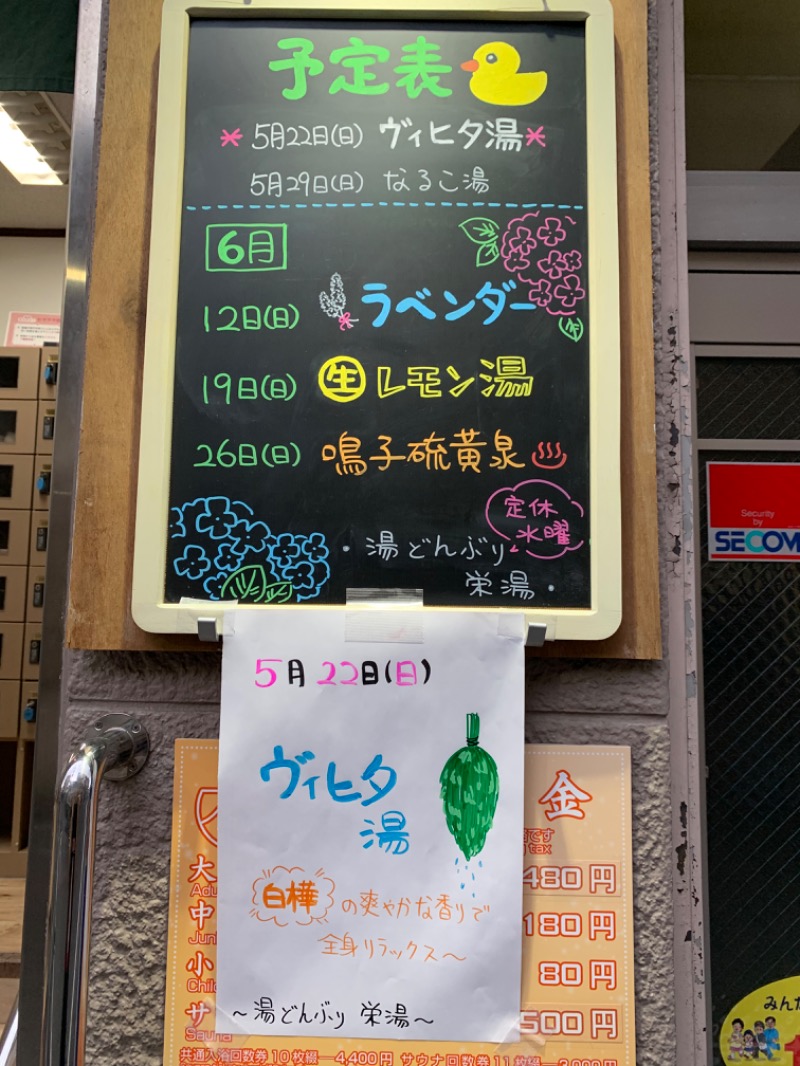 予定表
*5月22日(日) ヴィヒタ湯*
5月29日(日) なるこ湯
6月
12日(日) ラベンダー
19日(日) 生レモン湯
26日(日) 鳴子硫黄泉♨
定休
水曜
・湯どんぶり
栄湯・
Security
by
SECOM
5月22日(日)
ヴィヒタ
湯
白樺の爽やかな香りで
全身リラックス〜
〜湯どんぶり 栄湯〜
金
です
tax
大
480円
中
180円
小
80円
サ
Sauna
500円
共通入浴回数券10枚綴―4,400円 サウナ回数券11枚綴
みんな